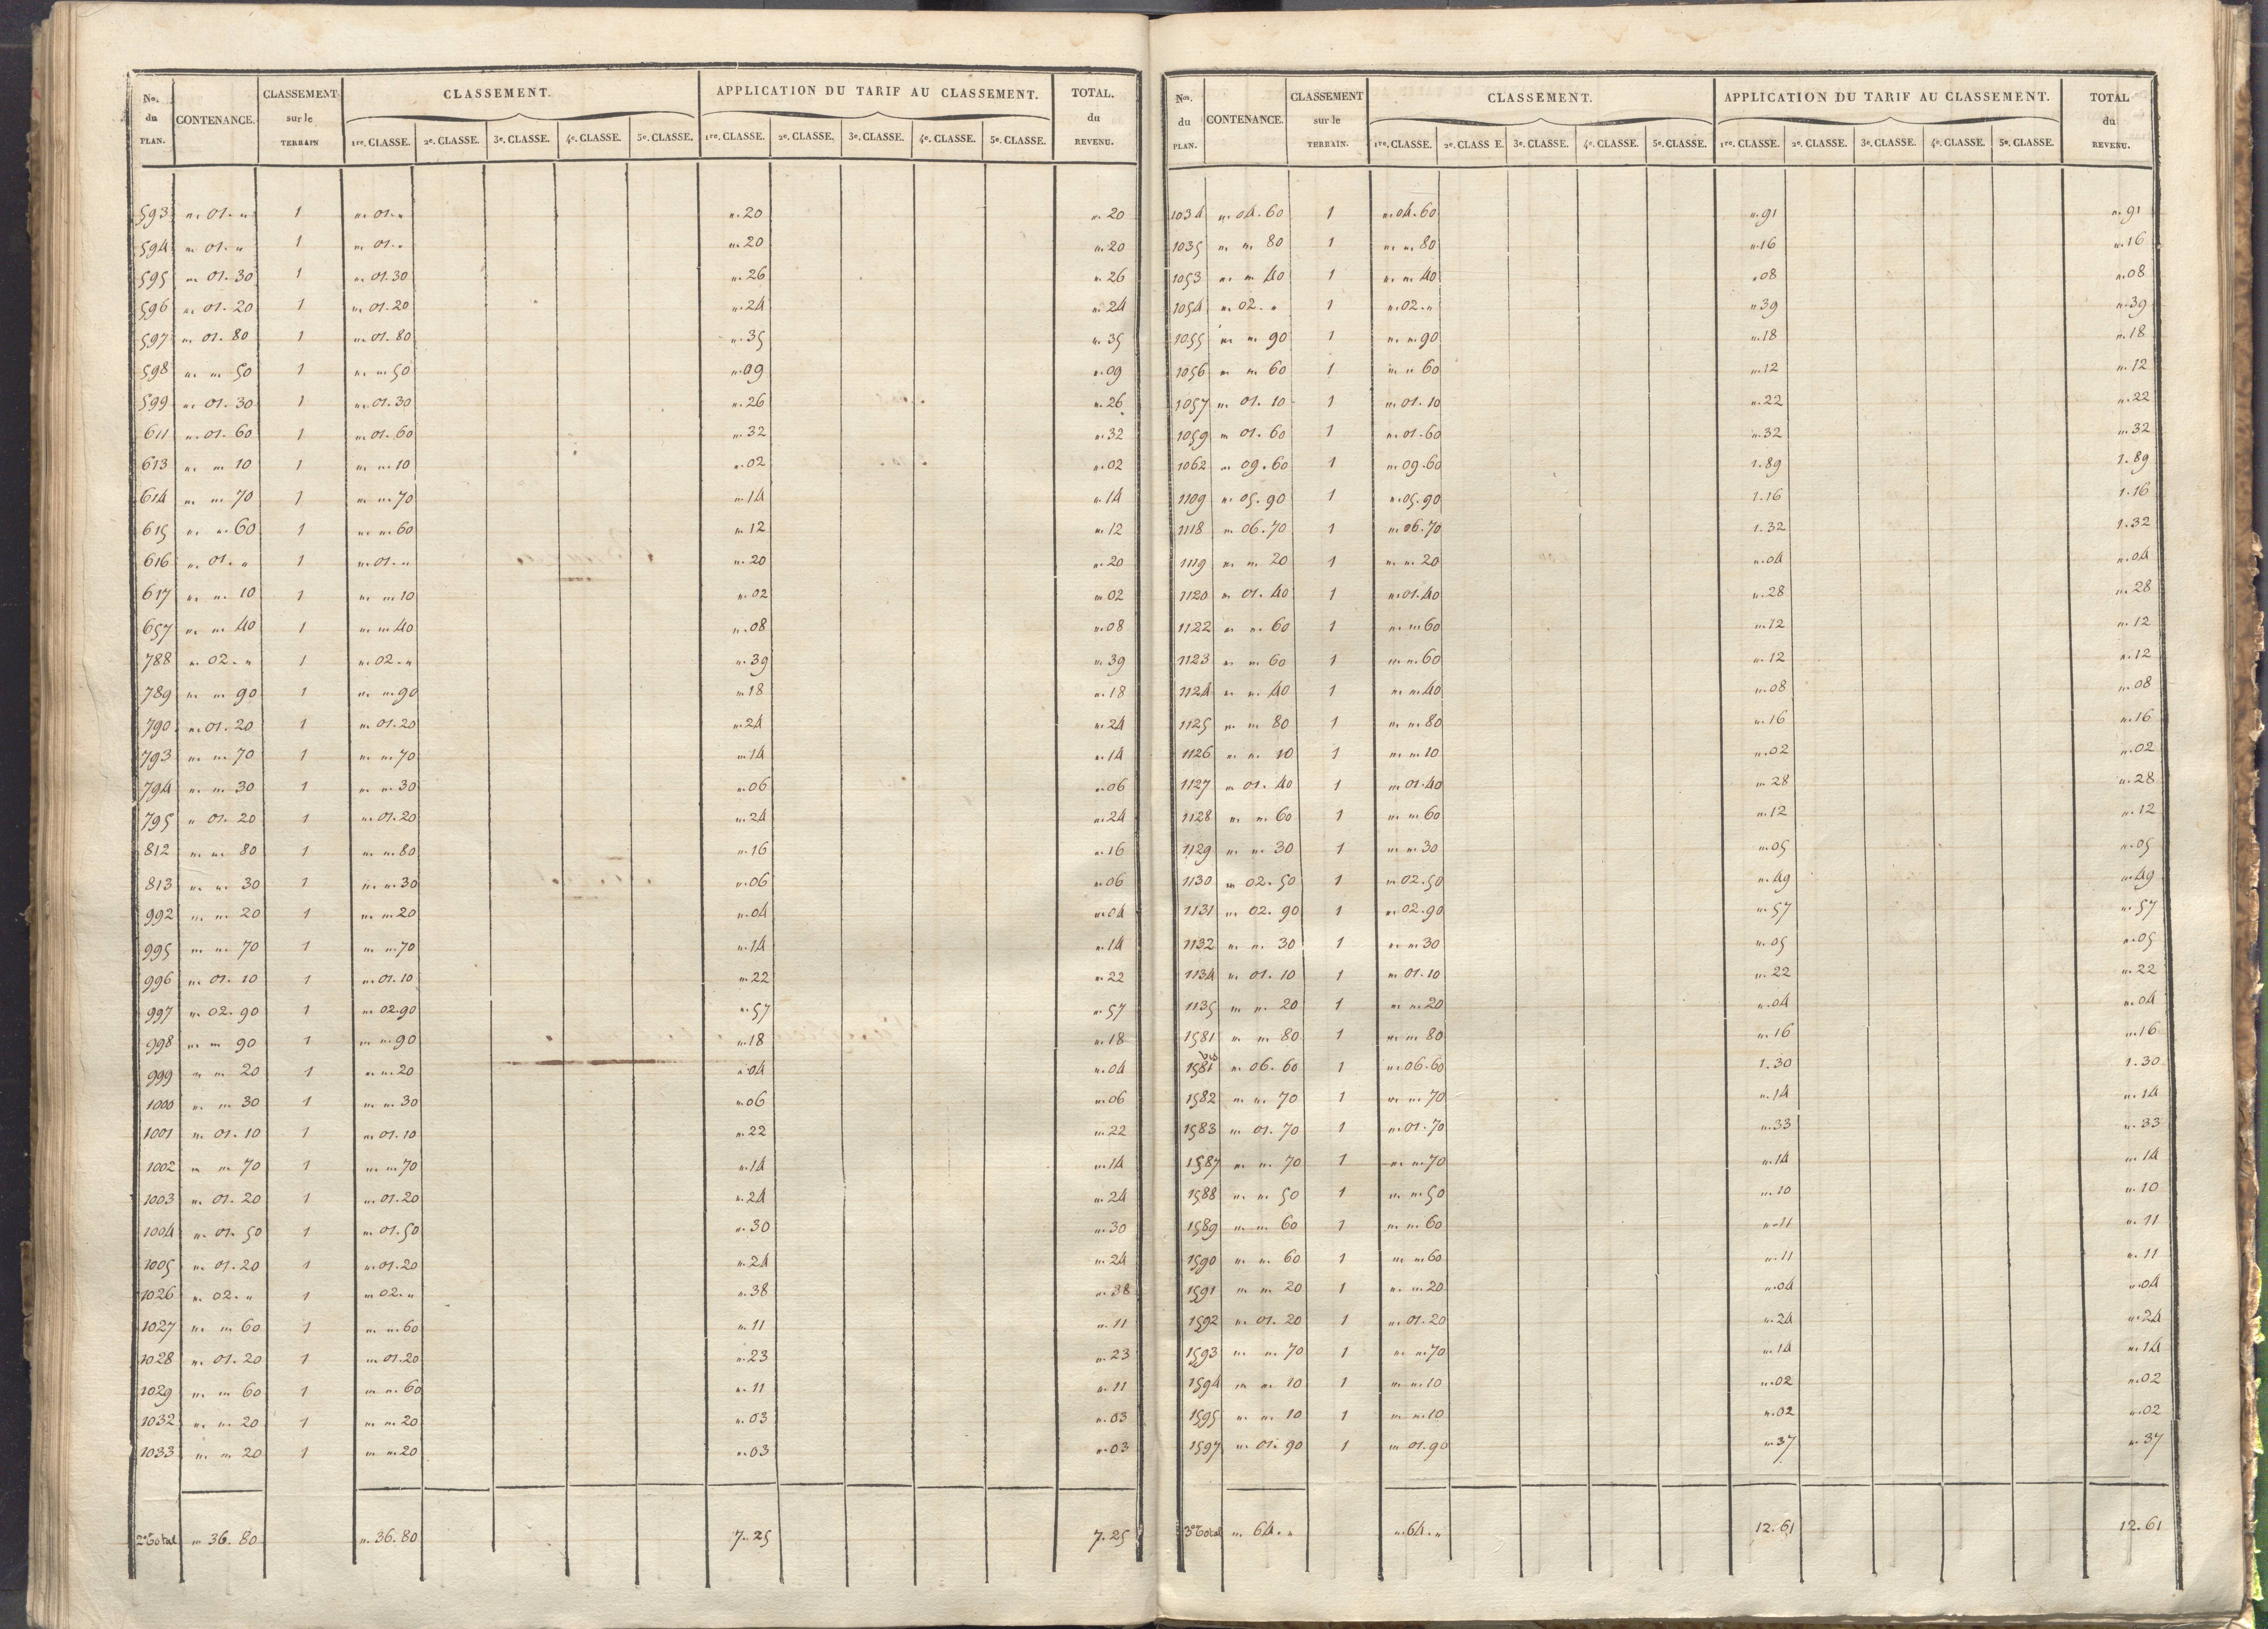 Nos. du PLAN. CONTENANCE. CLASSEMENT sur le TERRAIN CLASSEMENT. APPLICATION DU TARIF AU CLASSEMENT. TOTAL. du REVENU.
1re. CLASSE. 2e. CLASSE. 3e. CLASSE. 4e. CLASSE. 5e. CLASSE. 1re. CLASSE. 2e. CLASSE. 3e. CLASSE. 4e. CLASSE. 5e. CLASSE.
593 " 01. " 1 " 01. " ". 20 ". 20
594 " 01. " 1 " 01. " ". 20 ". 20
595 " 01. 30 1 " 01. 30 ". 26 ". 26
596 " 01. 20 1 " 01. 20 ". 24 ". 24
597 " 01. 80 1 " 01. 80 ". 35 ". 35
598 " " 50 1 " " 50 ". 09 ". 09
599 " 01. 30 1 " 01. 30 ". 26 ". 26
611 " 01. 60 1 " 01. 60 ". 32 ". 32
613 " " 10 1 " " 10 ". 02 ". 02
614 " " 70 1 " " 70 ". 14 ". 14
615 " " 60 1 " " 60 ". 12 ". 12
616 " 01. " 1 " 01. " ". 20 ". 20
617 " " 10 1 " " 10 ". 02 ". 02
657 " " 40 1 " " 40 ". 08 ". 08
788 " 02. " 1 " 02. " ". 39 ". 39
789 " " 90 1 " " 90 ". 18 ". 18
790 " 01. 20 1 " 01. 20 ". 24 ". 24
793 " " 70 1 " " 70 ". 14 ". 14
794 " " 30 1 " " 30 ". 06 ". 06
795 " 01. 20 1 " 01. 20 ". 24 ". 24
812 " " 80 1 " " 80 ". 16 ". 16
813 " " 30 1 " " 30 ". 06 ". 06
992 " " 20 1 " " 20 ". 04 ". 04
995 " " 70 1 " " 70 ". 14 ". 14
996 " 01. 10 1 " 01. 10 ". 22 ". 22
997 " 02. 90 1 " 02. 90 ". 57 ". 57
998 " " 90 1 " " 90 ". 18 ". 18
999 " " 20 1 " " 20 ". 04 ". 04
1000 " " 30 1 " " 30 ". 06 ". 06
1001 " 01. 10 1 " 01. 10 ". 22 ". 22
1002 " " 70 1 " " 70 ". 14 ". 14
1003 " 01. 20 1 " 01. 20 ". 24 ". 24
1004 " 01. 50 1 " 01. 50 ". 30 ". 30
1005 " 01. 20 1 " 01. 20 ". 24 ". 24
1026 " 02. " 1 " 02. " ". 38 ". 38
1027 " " 60 1 " " 60 ". 11 ". 11
1028 " 01. 20 1 " 01. 20 ". 23 ". 23
1029 " " 60 1 " " 60 ". 11 ". 11
1032 " " 20 1 " " 20 ". 03 ". 03
1033 " " 20 1 " " 20 ". 03 ". 03
2e Total " 36. 80 " 36. 80 7. 25 7. 25
Nos. du PLAN. CONTENANCE. CLASSEMENT sur le TERRAIN. CLASSEMENT. APPLICATION DU TARIF AU CLASSEMENT. TOTAL du REVENU.
1re. CLASSE. 2e. CLASS E. 3e. CLASSE. 4e. CLASSE. 5e. CLASSE. 1re. CLASSE. 2e. CLASSE. 3e. CLASSE. 4e. CLASSE. 5e. CLASSE.
1034 " 04. 60 1 " 04. 60 ". 91 ". 91
1035 " " 80 1 " " 80 ". 16 ". 16
1053 " " 40 1 " " 40 " 08 ". 08
1054 " 02. " 1 " 02. " " 39 ". 39
1055 " " 90 1 " " 90 ". 18 ". 18
1056 " " 60 1 " " 60 ". 12 ". 12
1057 " 01. 10 1 " 01. 10 ". 22 ". 22
1059 " 01. 60 1 " 01. 60 ". 32 ". 32
1062 " 09. 60 1 " 09. 60 1. 89 1. 89
1109 " 05. 90 1 " 05. 90 1. 16 1. 16
1118 " 06. 70 1 " 06. 70 1. 32 1. 32
1119 " " 20 1 " " 20 ". 04 ". 04
1120 " 01. 40 1 " 01. 40 ". 28 ". 28
1122 " " 60 1 " " 60 ". 12 ". 12
1123 " " 60 1 " " 60 ". 12 ". 12
1124 " " 40 1 " " 40 ". 08 ". 08
1125 " " 80 1 " " 80 ". 16 ". 16
1126 " " 10 1 " " 10 ". 02 ". 02
1127 " 01. 40 1 " 01. 40 ". 28 ". 28
1128 " " 60 1 " " 60 ". 12 ". 12
1129 " " 30 1 " " 30 ". 05 ". 05
1130 " 02. 50 1 " 02. 50 ". 49 ". 49
1131 " 02. 90 1 " 02. 90 ". 57 ". 57
1132 " " 30 1 " " 30 ". 05 ". 05
1134 " 01. 10 1 " 01. 10 ". 22 ". 22
1135 " " 20 1 " " 20 ". 04 ". 04
1581 " " 80 1 " " 80 ". 16 ". 16
1581 bis " 06. 60 1 " 06. 60 1. 30 1. 30
1582 " " 70 1 " " 70 ". 14 ". 14
1583 " 01. 70 1 " 01. 70 ". 33 ". 33
1587 " " 70 1 " " 70 ". 14 ". 14
1588 " " 50 1 " " 50 ". 10 ". 10
1589 " " 60 1 " " 60 ". 11 ". 11
1590 " " 60 1 " " 60 ". 11 ". 11
1591 " " 20 1 " " 20 ". 04 ". 04
1592 " 01. 20 1 " 01. 20 ". 24 ". 24
1593 " " 70 1 " " 70 ". 14 ". 14
1594 " " 10 1 " " 10 ". 02 ". 02
1595 " " 10 1 " " 10 ". 02 ". 02
1597 " 01. 90 1 " 01. 90 ". 37 ". 37
3e Total " 64. " " 64. " 12. 61 12. 61